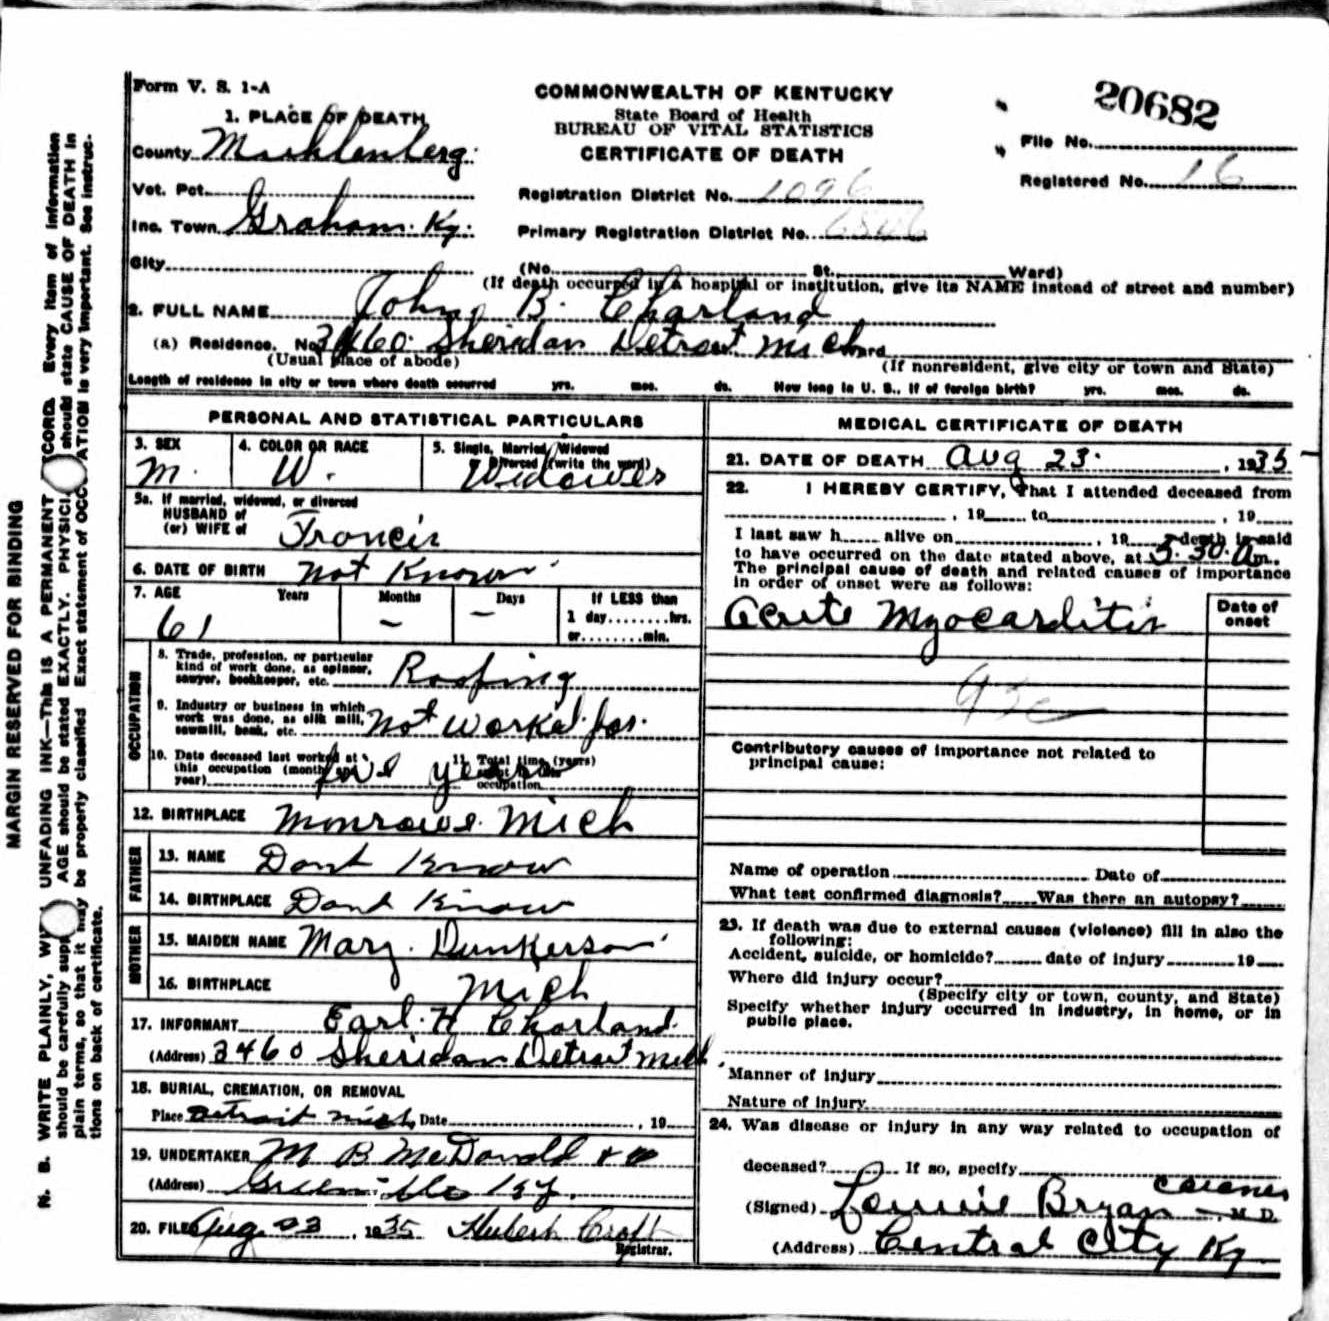 Form V. S. 1-A
COMMONWEALTH OF KENTUCKY
State Board of Health
BUREAU OF VITAL STATISTICS
CERTIFICATE OF DEATH
20682
File No.
Registered No. 16
1. PLACE OF DEATH
County Muhlenberg
Vot. Pct.
Inc. Town Graham Ky.
City
Registration District No. 1096
Primary Registration District No.
(No. St. Ward)
(If death occurred in a hospital or institution, give its NAME instead of street and number)
2. FULL NAME John B. Charland
(a) Residence. No. 3460 Sheridan Detroit Mich Ward
(Usual place of abode) (If nonresident, give city or town and State)
Length of residence in city or town where death occurred yrs. mos. ds. How long in U. S., if of foreign birth? yrs. mos. ds.
PERSONAL AND STATISTICAL PARTICULARS
3. SEX M.
4. COLOR OR RACE W.
5. Single, Married, Widowed or Divorced (write the word) Widower
5a. If married, widowed, or divorced
HUSBAND of
(or) WIFE of Francis
6. DATE OF BIRTH Not Known
7. AGE Years Months Days If LESS than
61 – – 1 day........hrs.
or........min.
OCCUPATION
8. Trade, profession, or particular
kind of work done, as spinner,
sawyer, bookkeeper, etc. Roofing
9. Industry or business in which
work was done, as silk mill,
sawmill, bank, etc. Not worked for
10. Date deceased last worked at
this occupation (month and
year) five years
11. Total time (years)
occupation
12. BIRTHPLACE Monrowe. Mich
FATHER
13. NAME Dont Know
14. BIRTHPLACE Dont Know
MOTHER
15. MAIDEN NAME Mary Dunkerson
16. BIRTHPLACE Mich
17. INFORMANT Earl H Charland
(Address) 3460 Sheridan Detroit Mich.
18. BURIAL, CREMATION, OR REMOVAL
Place Detroit Mich Date , 19
19. UNDERTAKER M B McDonald & Co
(Address) Greenville Ky.
20. FILED Aug 23, 1935 Hubert Croft
Registrar.
MEDICAL CERTIFICATE OF DEATH
21. DATE OF DEATH Aug 23. , 1935
22. I HEREBY CERTIFY, That I attended deceased from
, 19 to , 19
I last saw h alive on , 19 death is said
to have occurred on the date stated above, at 5.30 a m.
The principal cause of death and related causes of importance
in order of onset were as follows:
Date of
onset
Acute Myocarditis
Contributory causes of importance not related to
principal cause:
Name of operation Date of
What test confirmed diagnosis? Was there an autopsy?
23. If death was due to external causes (violence) fill in also the
following:
Accident, suicide, or homicide? date of injury 19
Where did injury occur?
(Specify city or town, county, and State)
Specify whether injury occurred in industry, in home, or in
public place.
Manner of injury
Nature of injury
24. Was disease or injury in any way related to occupation of
deceased? If so, specify
(Signed) Lonnie Bryan Coroner M. D.
(Address) Central City Ky
MARGIN RESERVED FOR BINDING
N. B. WRITE PLAINLY, UNFADING INK—This IS A PERMANENT RECORD. Every item of information
should be carefully supplied AGE should be stated EXACTLY. PHYSICIANS should state CAUSE OF DEATH in
plain terms, so that it may be properly classified Exact statement of OCCUPATION is very important. See instruc-
tions on back of certificate.